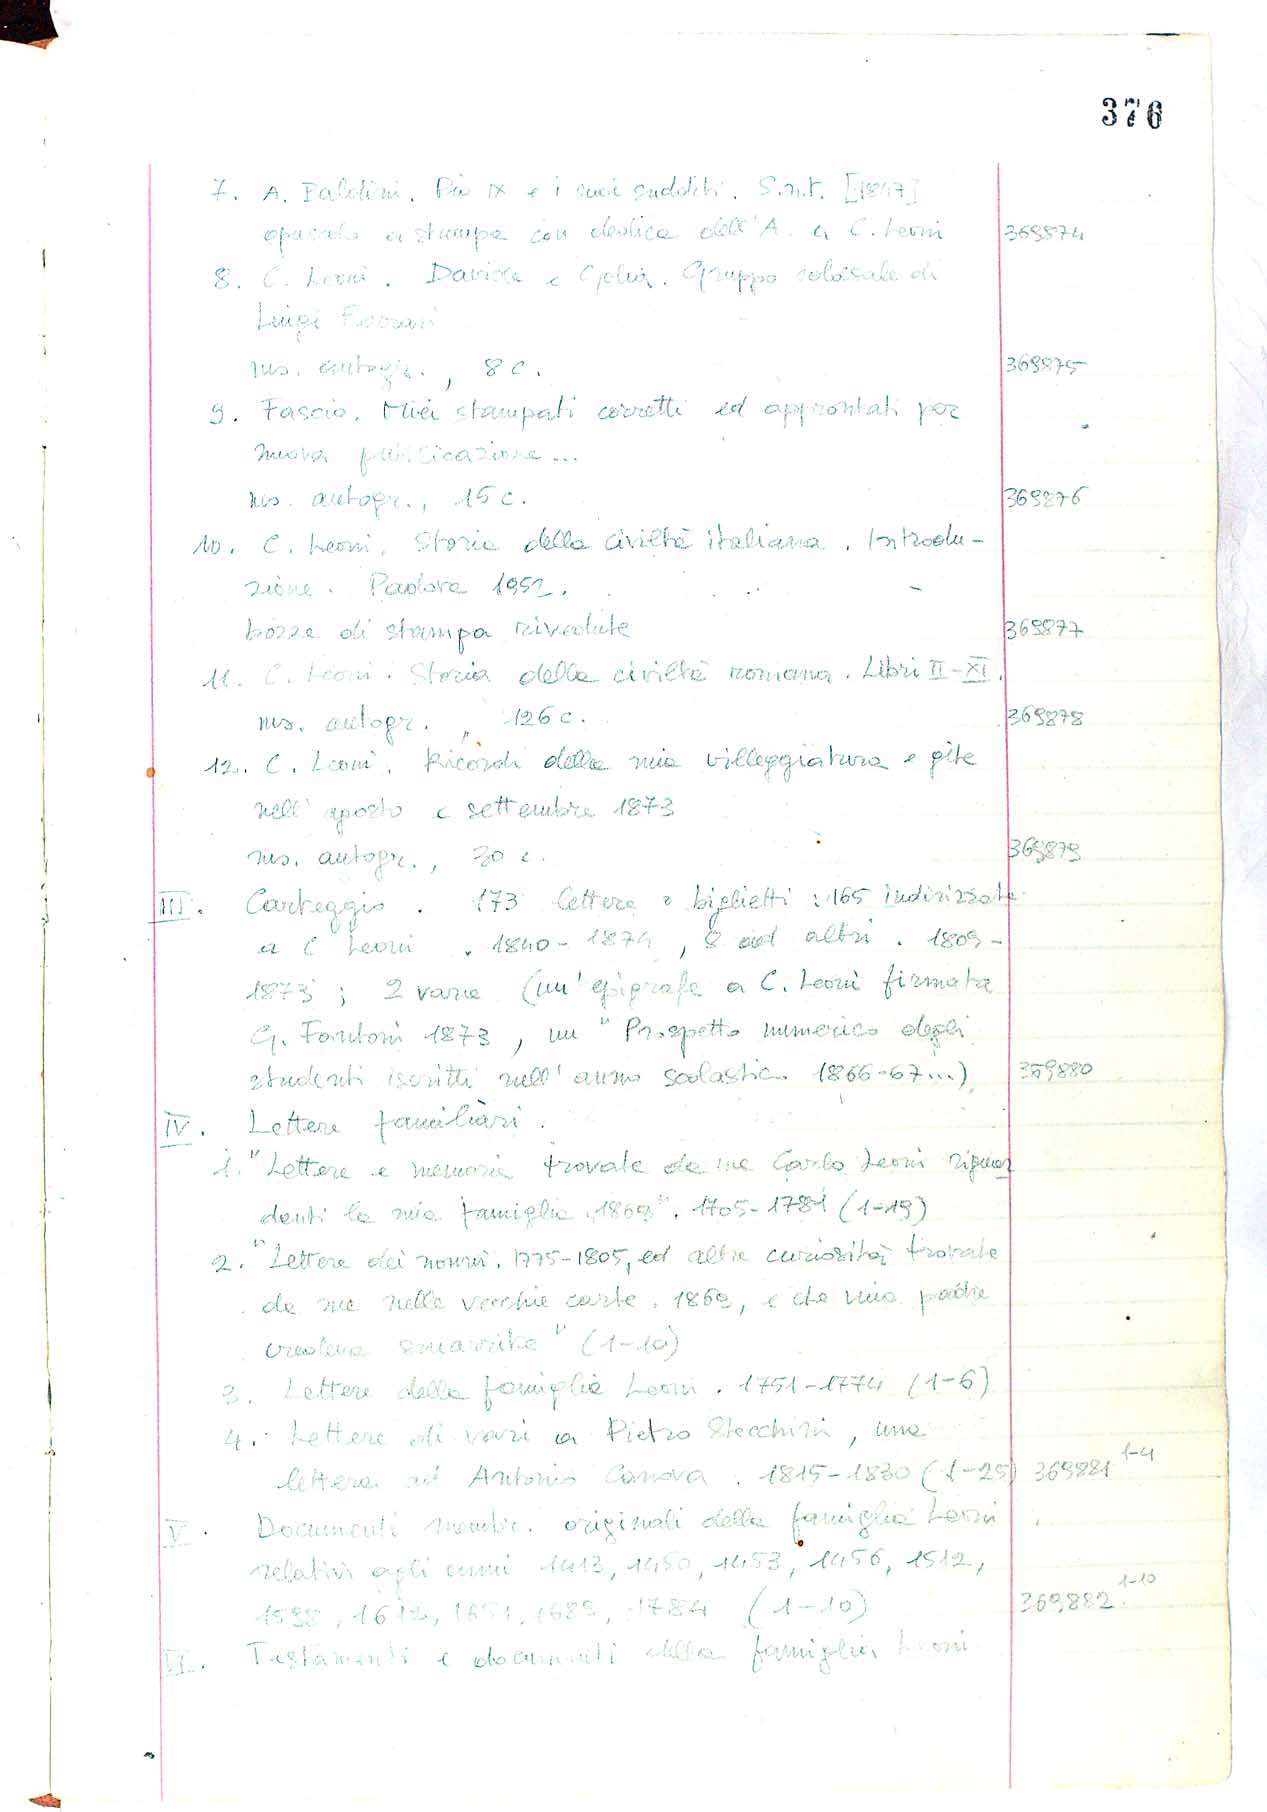 376
7. A. Baldini. Pio IX e i suoi sudditi. S.n.t. [1847]
opuscolo a stampa con dedica dell'A. a C. Leoni 369874
8. C. Leoni. Davide e Golia. Gruppo colossale di
Luigi Ferrari
ms. autogr., 8 c. 369875
9. Fascio. Miei stampati corretti ed approntati per
nuova pubblicazione...
ms. autogr., 15 c. 369876
10. C. Leoni. Storia della civiltà italiana. Introdu-
zione. Padova 1952.
bozze di stampa rivedute 369877
11. C. Leoni. Storia della civiltà romana. Libri II-XI.
ms. autogr., 126 c. 369878
12. C. Leoni. Ricordi della mia villeggiatura e gite
nell'agosto e settembre 1873
ms. autogr., 30 c. 369879
III. Carteggio. 173 lettere e biglietti: 165 indirizzate
a C Leoni. 1840-1874, 8 ad altri. 1809-
1873; 2 varie (un'epigrafe a C. Leoni firmata
G. Fantoni 1873, un "Prospetto numerico degli
studenti iscritti nell'anno scolastico 1866-67...) 369880
IV. Lettere familiari.
1. "Lettere e memorie trovate da me Carlo Leoni riguar
danti la mia famiglia. 1869". 1705-1781 (1-19)
2. "Lettere dei nonni. 1775-1805, ed altre curiosità trovate
da me nelle vecchie carte. 1869, e che mio padre
credeva smarrite" (1-10)
3. Lettere della famiglia Leoni. 1751-1774 (1-6)
4. Lettere di vari a Pietro Stecchini, una
lettera ad Antonio Canova. 1815-1830 (1-25) 369881 1-4
V. Documenti membr. originali della famiglia Leoni
relativi agli anni 1413, 1450, 1453, 1456, 1512,
1598, 1612, 1651, 1689, 1784 (1-10) 369882 1-10
VI. Testamenti e documenti della famiglia Leoni